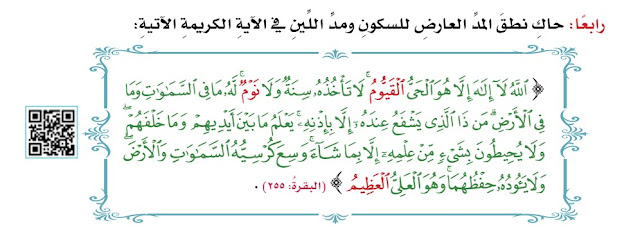 رابعًا: حاكِ نطقَ المدِّ العارضِ للسكونِ ومدِّ اللِّينِ في الآيةِ الكريمةِ الآتيةِ:
﴿ ٱللَّهُ لَآ إِلَٰهَ إِلَّا هُوَ ٱلْحَىُّ ٱلْقَيُّومُ ۚ لَا تَأْخُذُهُۥ سِنَةٌ وَلَا نَوْمٌ ۚ لَّهُۥ مَا فِى ٱلسَّمَٰوَٰتِ وَمَا
فِى ٱلْأَرْضِ ۗ مَن ذَا ٱلَّذِى يَشْفَعُ عِندَهُۥٓ إِلَّا بِإِذْنِهِۦ ۚ يَعْلَمُ مَا بَيْنَ أَيْدِيهِمْ وَمَا خَلْفَهُمْ ۖ
وَلَا يُحِيطُونَ بِشَىْءٍ مِّنْ عِلْمِهِۦٓ إِلَّا بِمَا شَآءَ ۚ وَسِعَ كُرْسِيُّهُ ٱلسَّمَٰوَٰتِ وَٱلْأَرْضَ ۖ
وَلَا يَـُٔودُهُۥ حِفْظُهُمَا ۚ وَهُوَ ٱلْعَلِىُّ ٱلْعَظِيمُ ﴾ (البقرة: ٢٥٥) .